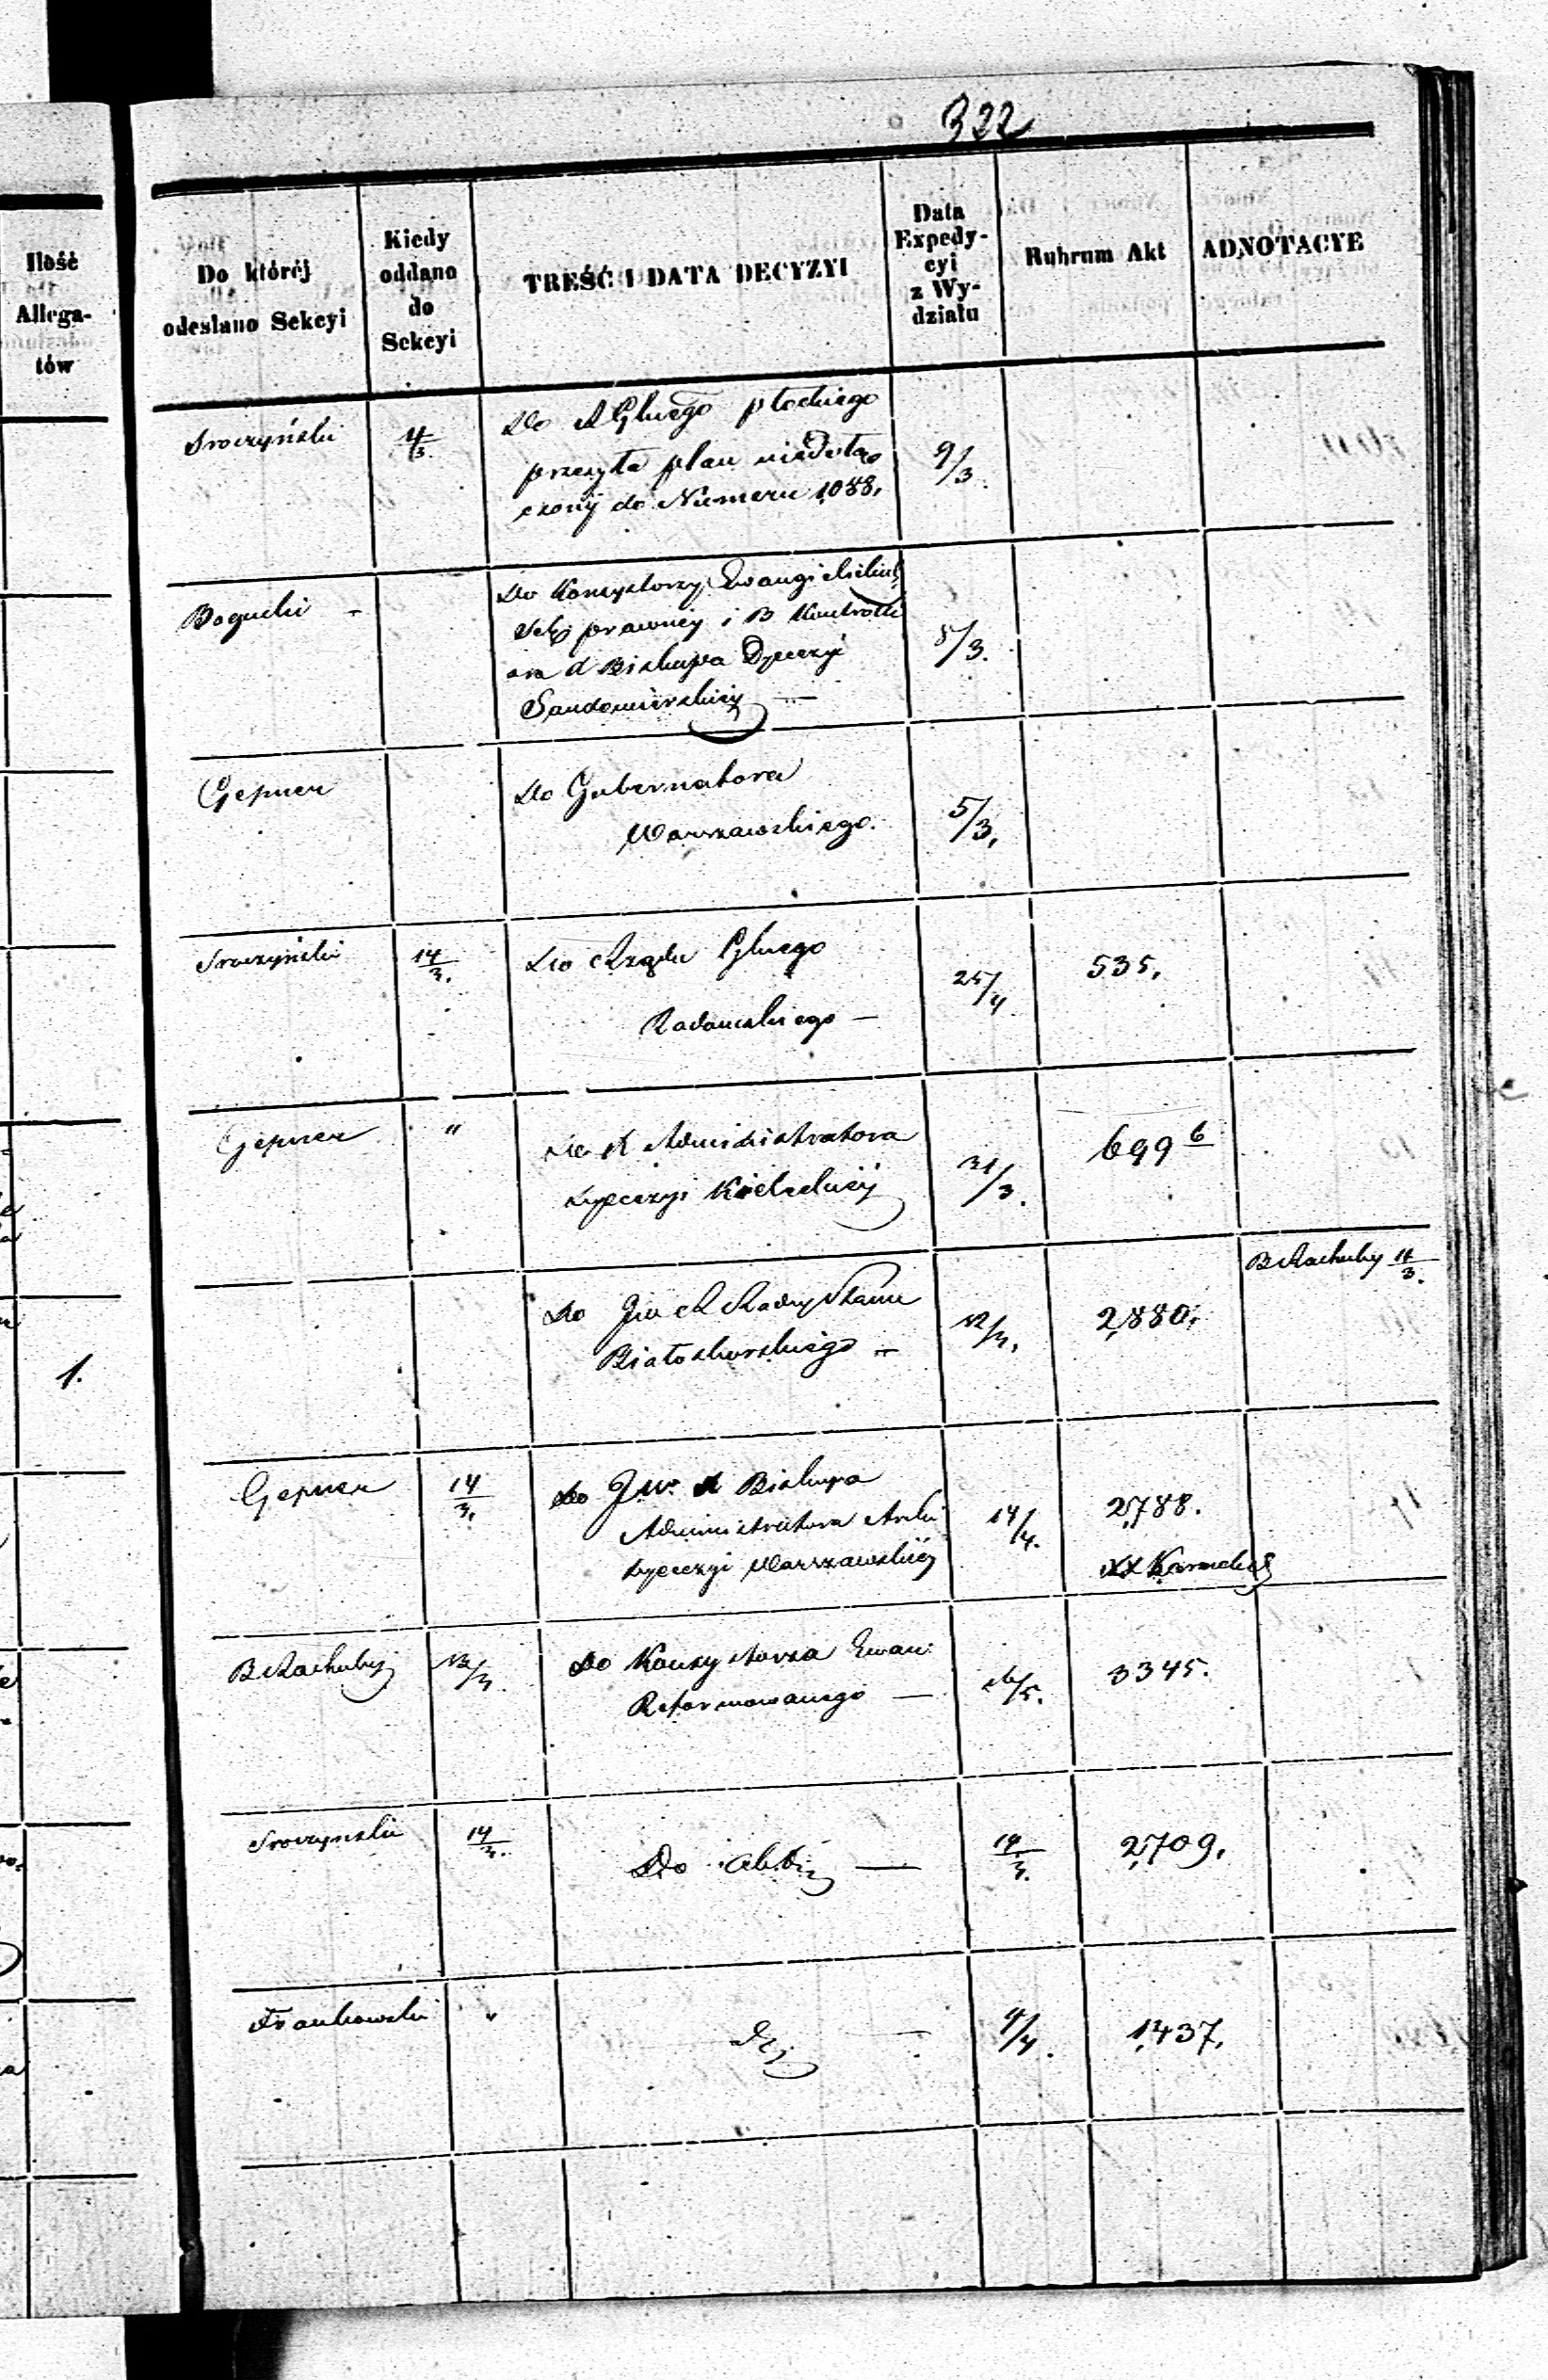 322
Ilość
Allega-
tów
Do którój
odesłano Sekcyi
Kiedy
oddano
do
Sekcyi
TREŚĆ I DATA DECYZYI
Data
Expedy-
cyi
z Wy-
działu
Rubrum Akt
ADNOTACYE
Sroczyński
4/3.
Do R Glnego płockiego
przesyła plan niedołą
czony do Numeru 1,088.
9/3.
Bogucki -
Do Konsystorzy Ewangielickich
Sekcyi prawnéj i B Kontroli
oraz Biskupa Dyecezyi
Sandomierskiéj —
8/3.
Gepner
Do Gubernatora
Warszawskiego.
5/3.
Sroczyński
14/3.
Do Rządu Glnego
Radomskiego —
25/4
535.
Gepner
"
Do X Administratora
Dyecezyi Kieleckiéj
31/3.
699 6
Do Jw R Radcy Stanu
Białoskurskiego —
12/3.
2,880.
B Rachuby 11/3.
1.
Gepner
14/3.
Do JW. X Biskupa
Administratora Archi
Dyecezyi Warszawskiéj
14/4.
2,788.
XX Karmelici
B Rachuby
12/3.
Do Konsystorza Ewan:
Reformowanego —
16/5.
3345.
Sroczyński
14/3.
Do Akt —
14/3.
2,709.
Frankowski
"
4/4.
1,437.